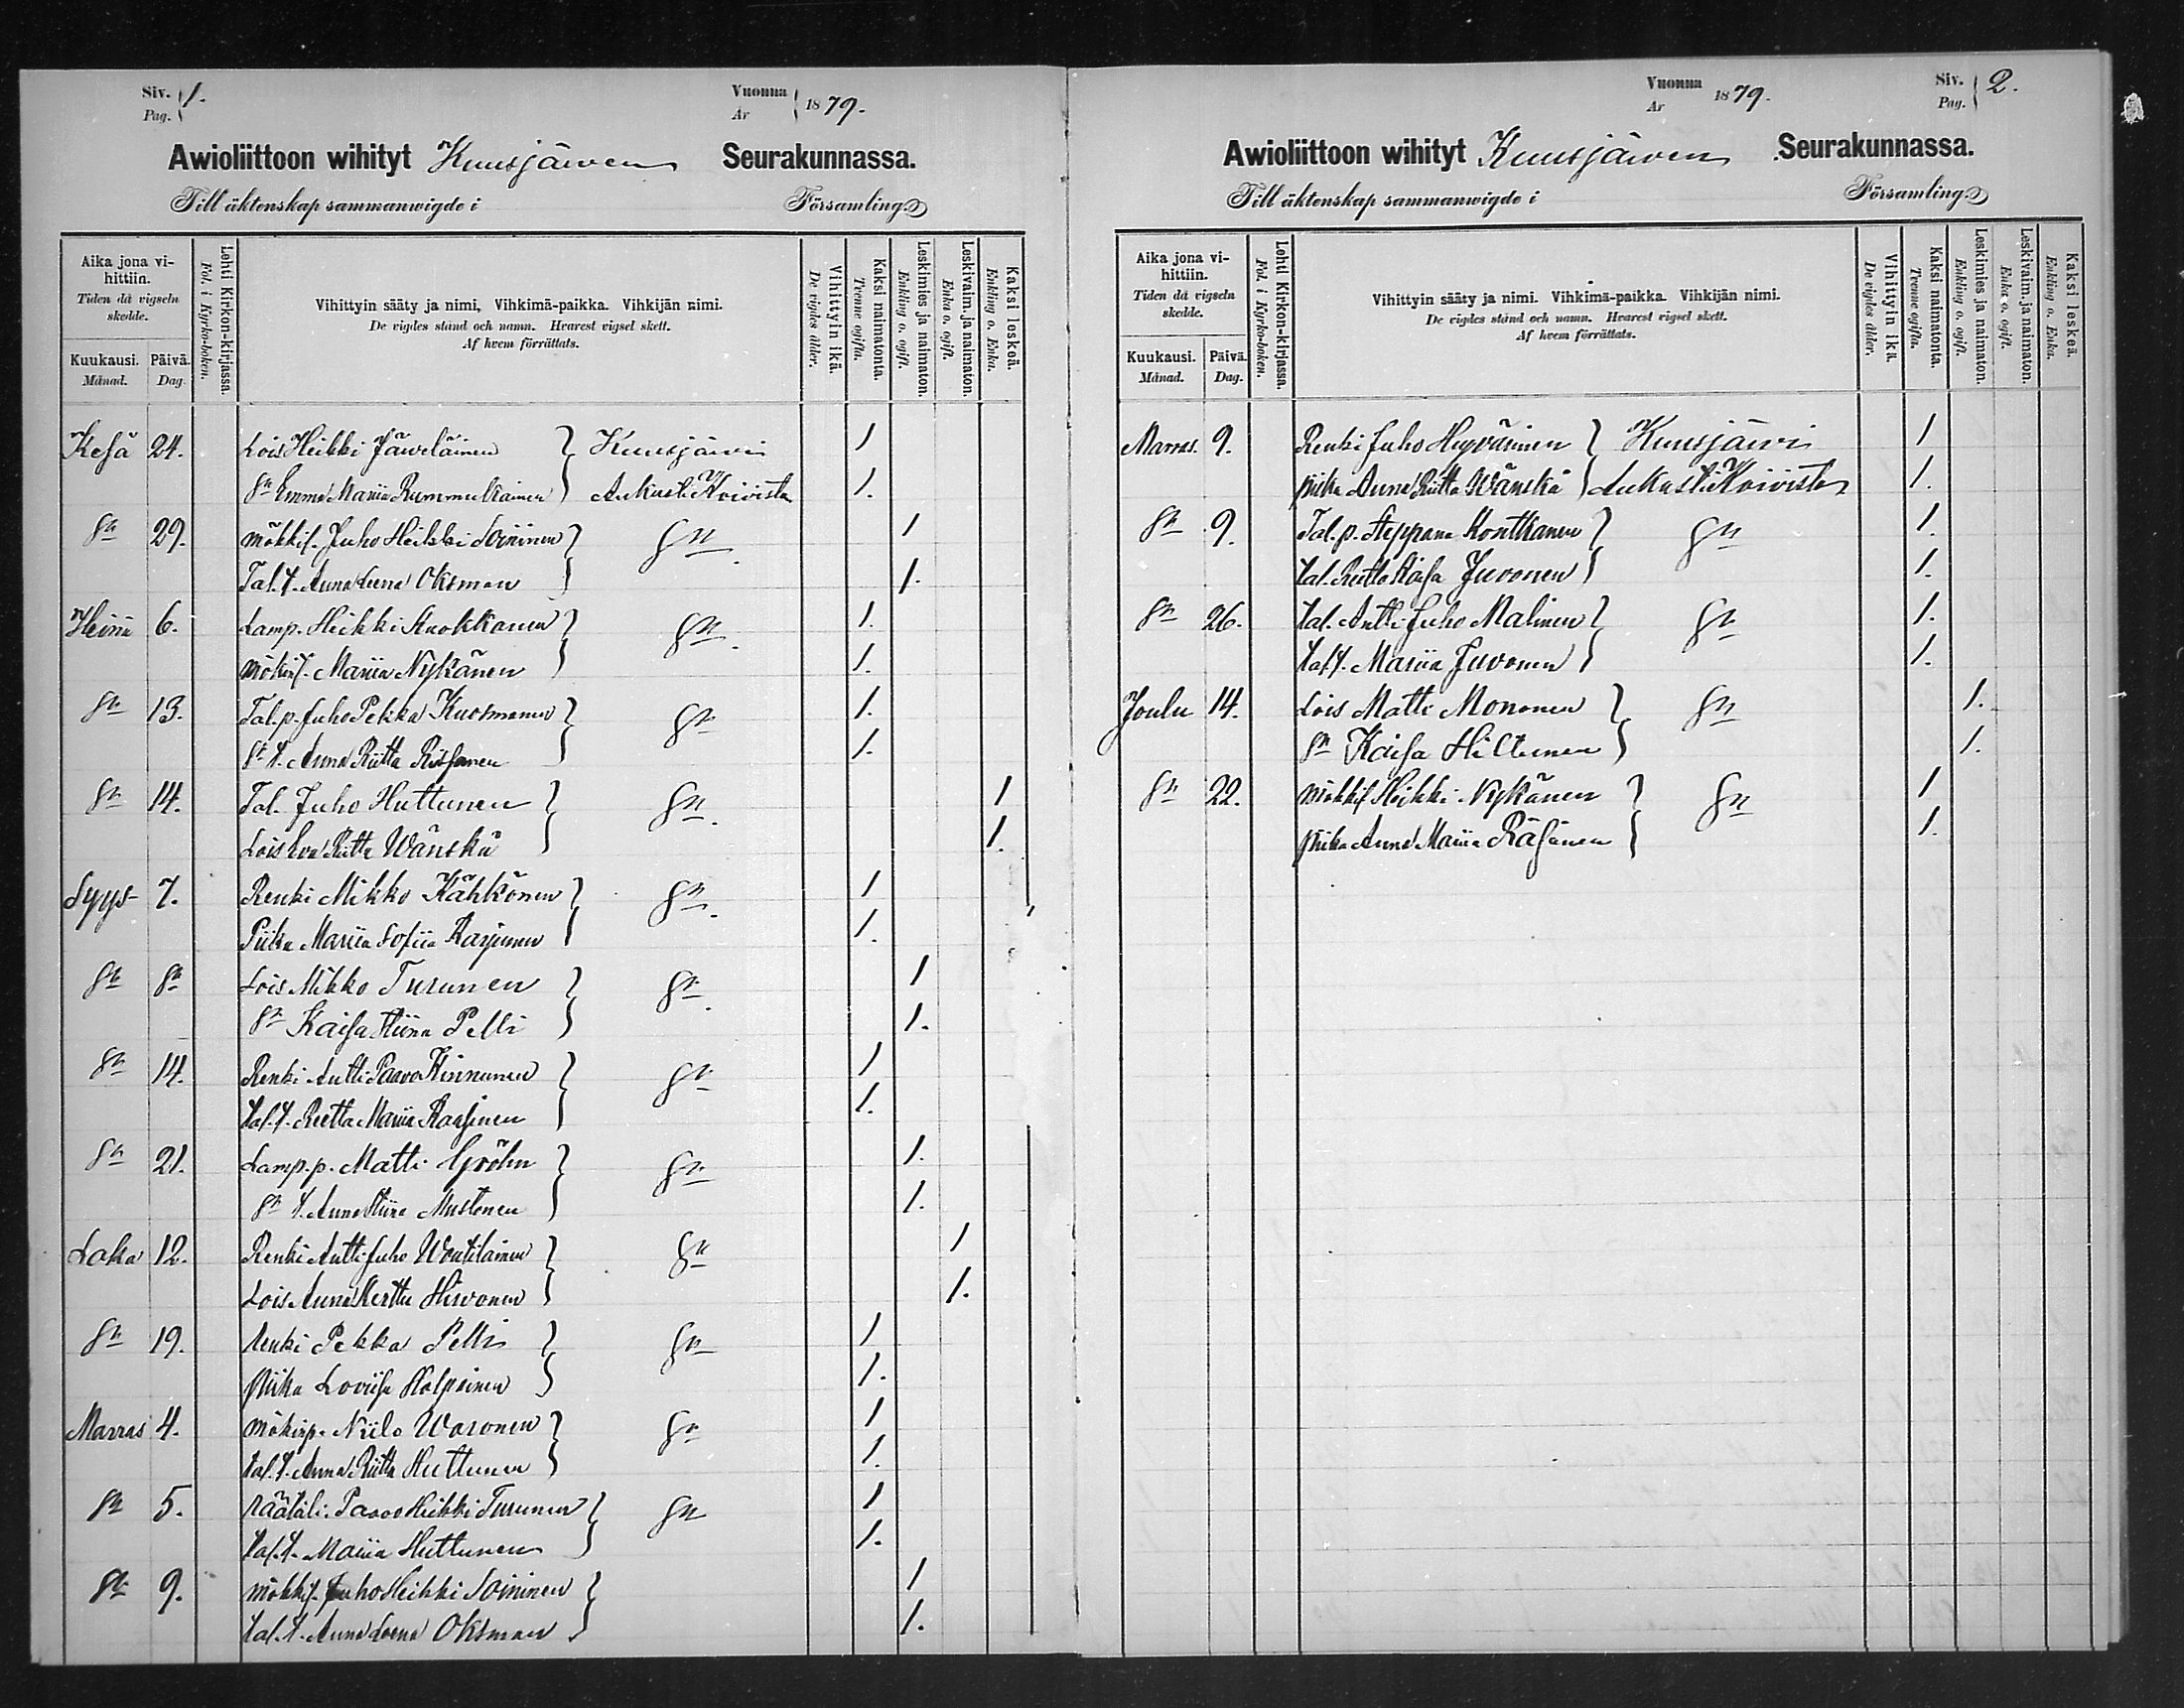 Siv. Pag. 1.
Vuonna År 1879.
Awioliittoon wihityt Kuusjärwen Seurakunnassa.
Till äktenskap sammanwigde i Församling
Aika jona vihittiin. Tiden då vigseln skedde.
Kuukausi. Månad. Päivä. Dag.
Lehti Kirkon-kirjassa. Fol. i Kyrko-boken.
Vihittyin sääty ja nimi, Vihkimä-paikka. Vihkijän nimi.
De vigdes stånd och namn. Hvarest vigsel skett.
Af hvem förrättats.
Vihittyin ikä. De vigdes ålder.
Kaksi naimatonta. Tvenne ogifta.
Leskimies ja naimaton. Enkling o. ogift.
Leskivaim. ja naimaton. Enka o. ogift.
Kaksi leskeä. Enkling o. Enka.
Kesä 24. Lois Heikki Järveläinen Kuusjärvi 1
Sn Emma Mariia Rummukainen Aukusti Koivisto 1.
Sn 29. mökkil. Juho Heikki Soininen Sn 1
Tal. t. Anna Leena Oksman 1.
Heinä 6. Lamp. Heikki Kuokkanen Sn 1.
mökint. Mariia Nykänen 1.
Sn 13. Tal. p. Juho Pekka Kuosmanen Sn 1.
Sn t. Anna Riitta Rissanen 1.
Sn 14. Tal. Juho Huttunen Sn 1
Lois Eva Riitta Wänskä 1.
Syys- 7. Renki Mikko Kähkönen Sn 1
Piika Mariia Sofiia Karjunen 1.
Sn Sn Lois Mikko Turunen Sn 1
Sn Kaisa Stiina Pelli 1.
Sn 14. Renki Antti Paavo Kinnunen Sn 1
tal. t. Reetta Mariia Raasinen 1.
Sn 21. Lamp. p. Matti Gröhn Sn 1.
Sn t. Anna Stiina Mustonen 1.
Loka 12. Renki Antti Juho Woutilainen Sn 1
Lois Anna Kerttu Hirvonen 1.
Sn 19. renki Pekka Pelli Sn 1
piika Loviisa Holpainen 1.
Marras 4. mökinp. Niilo Waronen Sn 1
tal. t. Anna Riitta Huttunen 1.
Sn 5. räätäli. Paavo Heikki Turunen Sn 1
tal. t. Mariia Huttunen 1.
Sn 9. mökkil. Juho Heikki Soininen 1
tal. t. Anna Leena Oksman 1.
Vuonna År 1879.
Siv. Pag. 2.
Awioliittoon wihityt Kuusjärwen Seurakunnassa.
Till äktenskap sammanwigde i Församling
Aika jona vihittiin. Tiden då vigseln skedde.
Kuukausi. Månad. Päivä. Dag.
Lehti Kirkon-kirjassa. Fol. i Kyrko-boken.
Vihittyin sääty ja nimi. Vihkimä-paikka. Vihkijän nimi.
De vigdes stånd och namn. Hvarest vigsel skett.
Af hvem förrättats.
Vihittyin ikä. De vigdes ålder.
Kaksi naimatonta. Tvenne ogifta.
Leskimies ja naimaton. Enkling o. ogift.
Leskivaim. ja naimaton. Enka o. ogift.
Kaksi leskeä. Enkling o. Enka.
Marras. 9. Renki Juho Hyvärinen Kuusjärvi 1
piika Anna Riitta Wänskä Aukusti Koivisto 1.
Sn 9. Tal. p. Steppana Kontkanen Sn 1.
tal. Reetta Kaisa Juvonen 1.
Sn 26. tal. Antti Juho Malinen Sn 1.
tal. t. Mariia Juvonen 1.
Joulu 14. Lois Matti Mononen Sn 1.
Sn Kaisa Hiltunen 1.
Sn 22. mökkil. Heikki Nykänen Sn 1
piika Anna Mariia Räsänen 1.